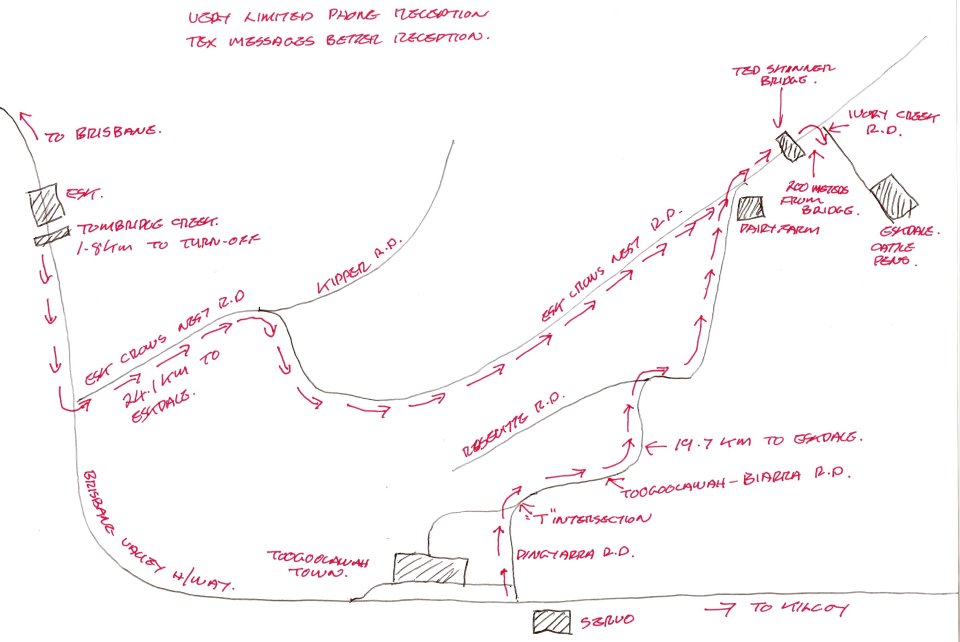 VERY LIMITED PHONE RECEPTION
TEX MESSAGES BETTER RECEPTION.
TED SKINNER
BRIDGE.
IVORY CREEK
R.D.
TO BRISBANE.
ESK.
TOMBRIDGE CREEK.
1.8KM TO TURN-OFF
200 METERS
FROM
BRIDGE.
DAIRY FARM
ESKDALE
CATTLE
PENS
KIPPER R.D.
ESK CROWS NEST R.D.
ESK CROWS NEST R.D
24.1 KM TO
ESKDALE.
R.D.
19.7 KM TO ESKDALE.
TOOGOOLAWAH - BIARRA R.D.
"T" INTERSECTION
BRISBANE VALLEY H/WAY.
TOOGOOLAWAH
TOWN.
DINGYARRA R.D.
TO KILCOY
SERVO